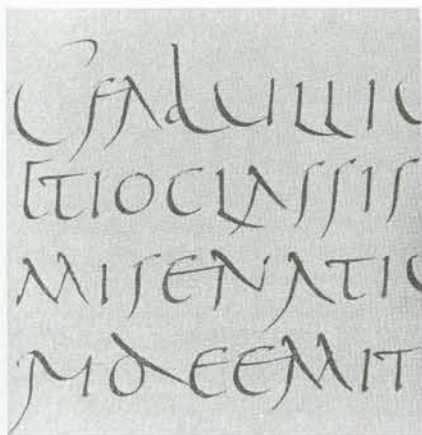 CFAdULLIU
ETIOCLASSIS
MISENATIU
MdEEMIT